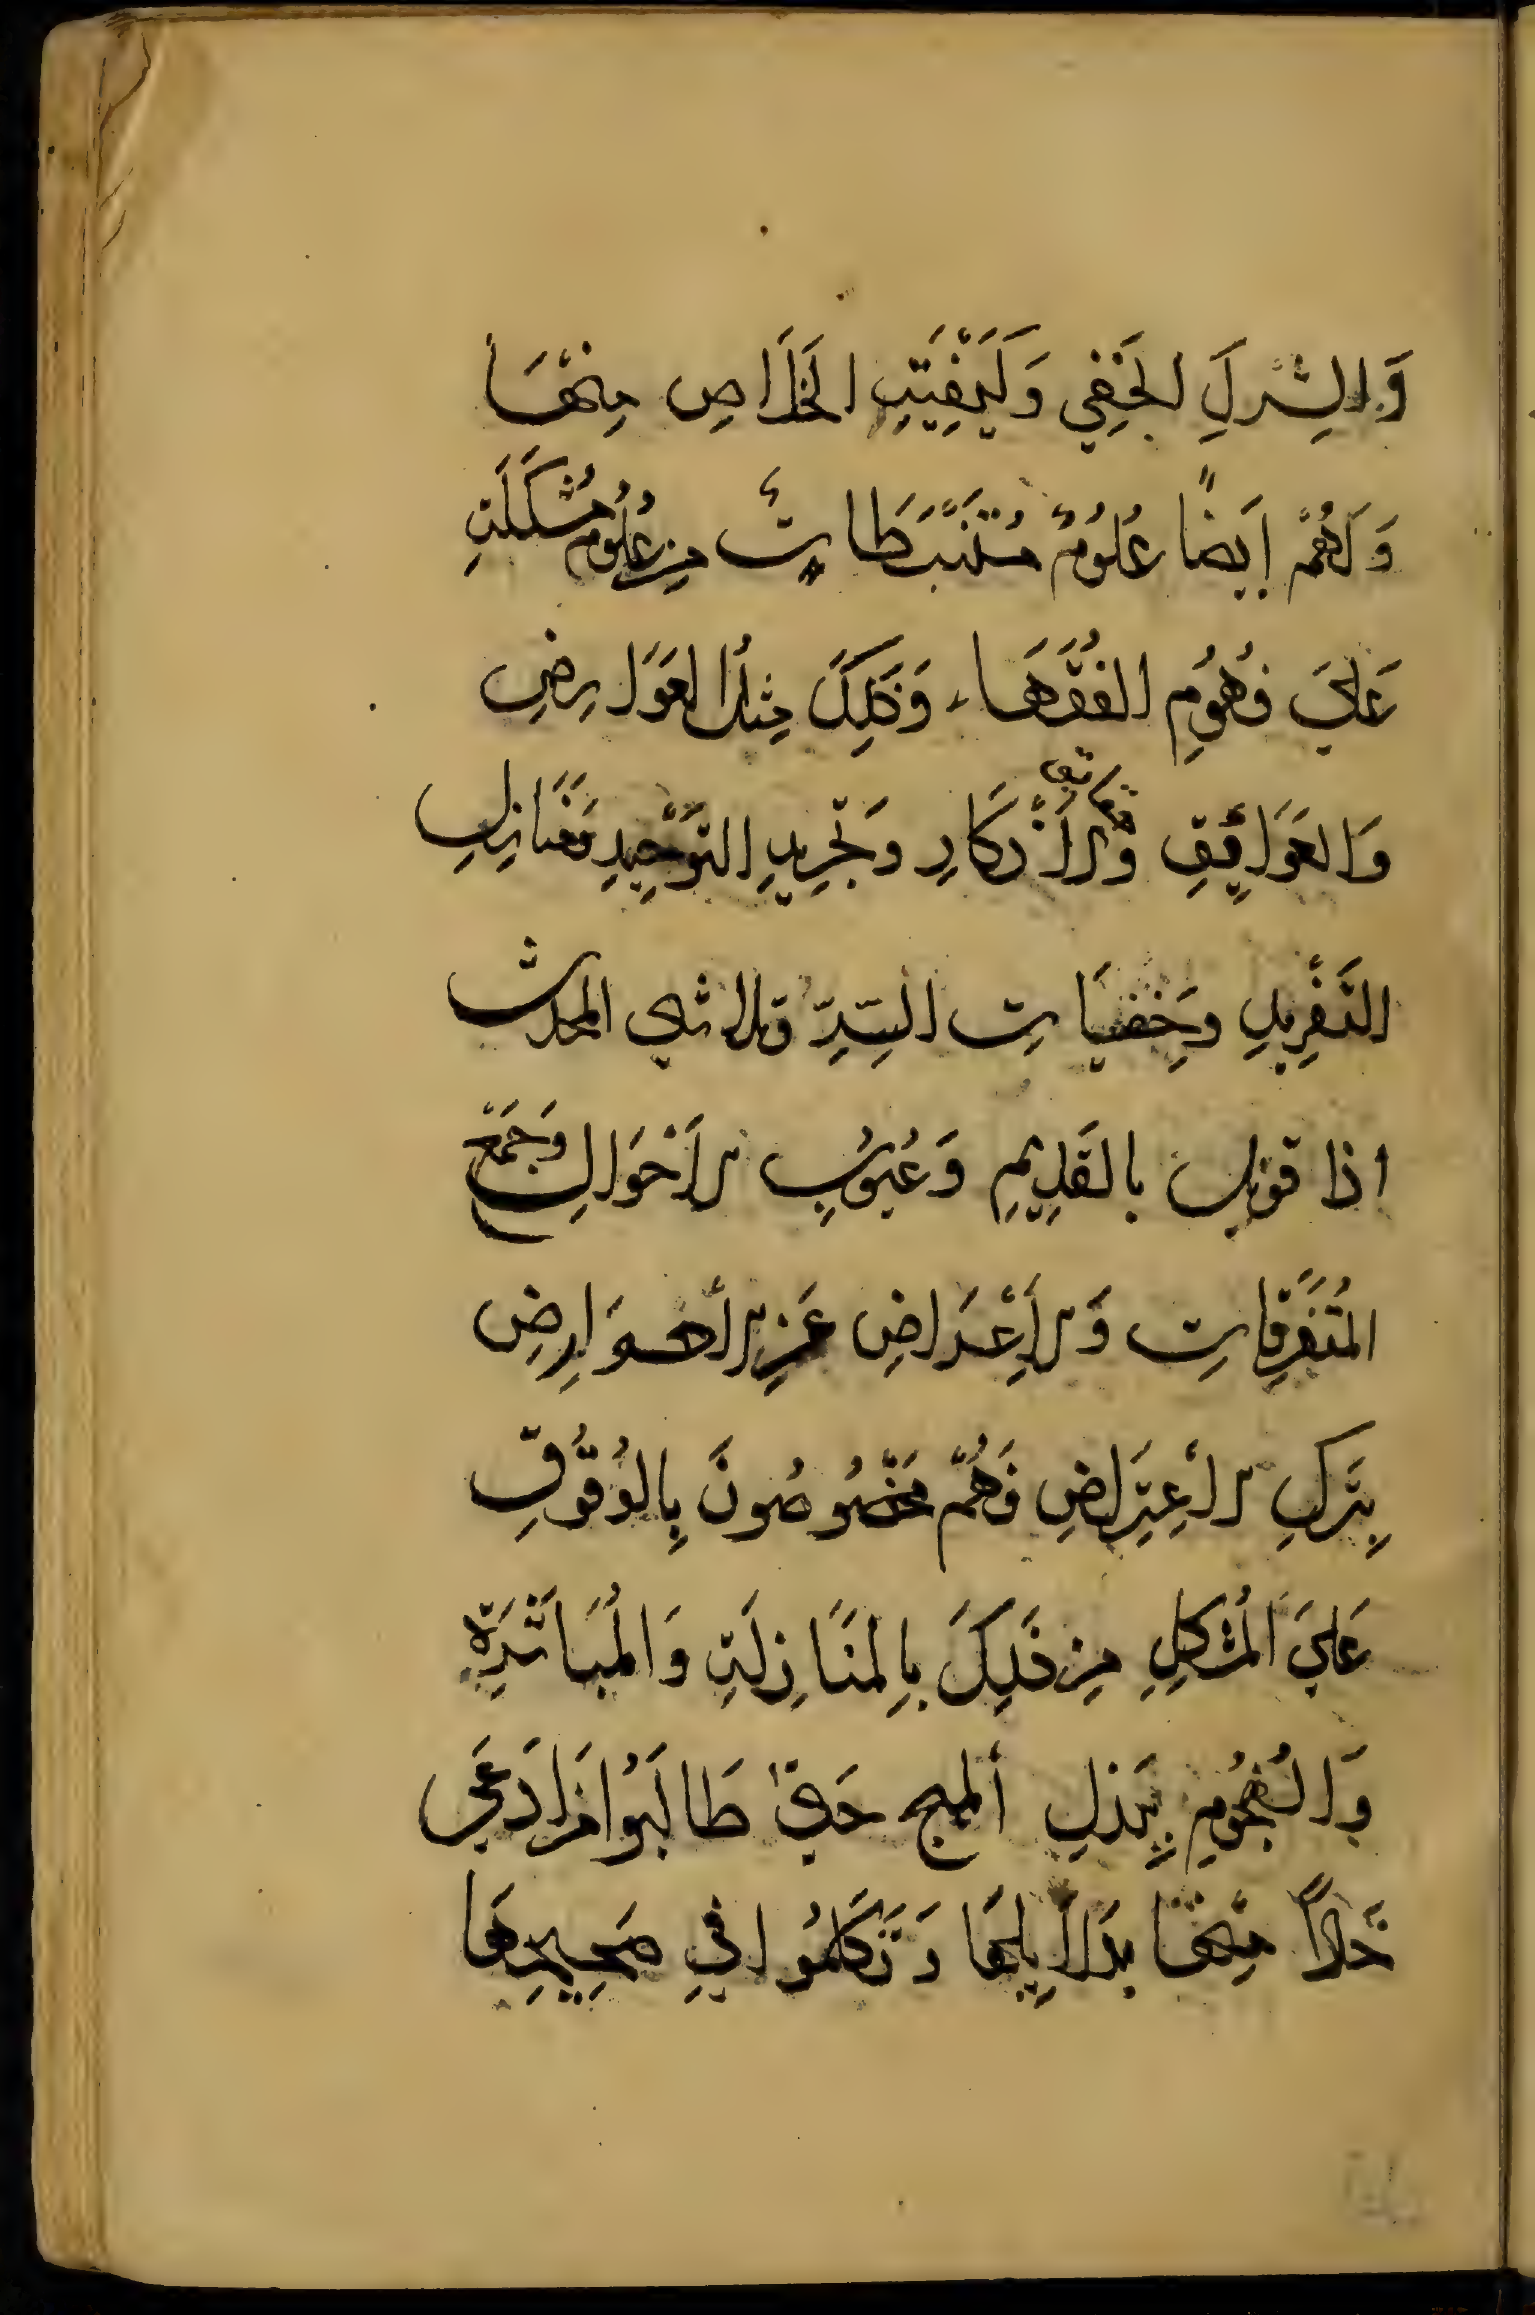 وَالشِّركِ الخَفِي وَكَيفِيَّتِ الخَلَاصِ مِنْهَا
وَلَهُمْ اَيضاً عُلُومٌ مُستَنبَطَاتٌ مِن عُلُومٍ مُشكَلَةٍ
عَلَيَ فُهُومِ الفُقَهَاءِ وَذَلِكَ مِثلُ العَوَارِضِ
وَالعَوَائِقِ وَحقائق الأَذْكَارِ وَتَجرِيدِ التَّوْحِيدِ وَمَنَازِلِ
التَّفْرِيدِ وَخَفِيَاتِ السِّرِّ وتلاشي المحدث
اذا قوبِل بالقَدِيمِ وَعُيُوبِ الأَحْوَالِ وَجَمْعِ
المُتَفَرِّقَاتِ وَالأَعْرَاضِ عَنِ الأَعوَارِضِ
بِتَركِ الأَعتِرَاضِ فَهُمْ مَخْصُوصُونَ بِالوُقُوفِ
عَلَيَ المُشكِلِ مِن ذَلِكَ بِالمُنَازِلَةِ وَالمُبَاشَرَةِ
وَالهُجُومِ بِبَذلِ المهج حَتيَّ طَالَبُوا مَن ادَّعَي
حَالاً مِنْهَا بِدَلَايِلِهَا وَتَكَلَّمُوا فِي صَحِيحِهَا